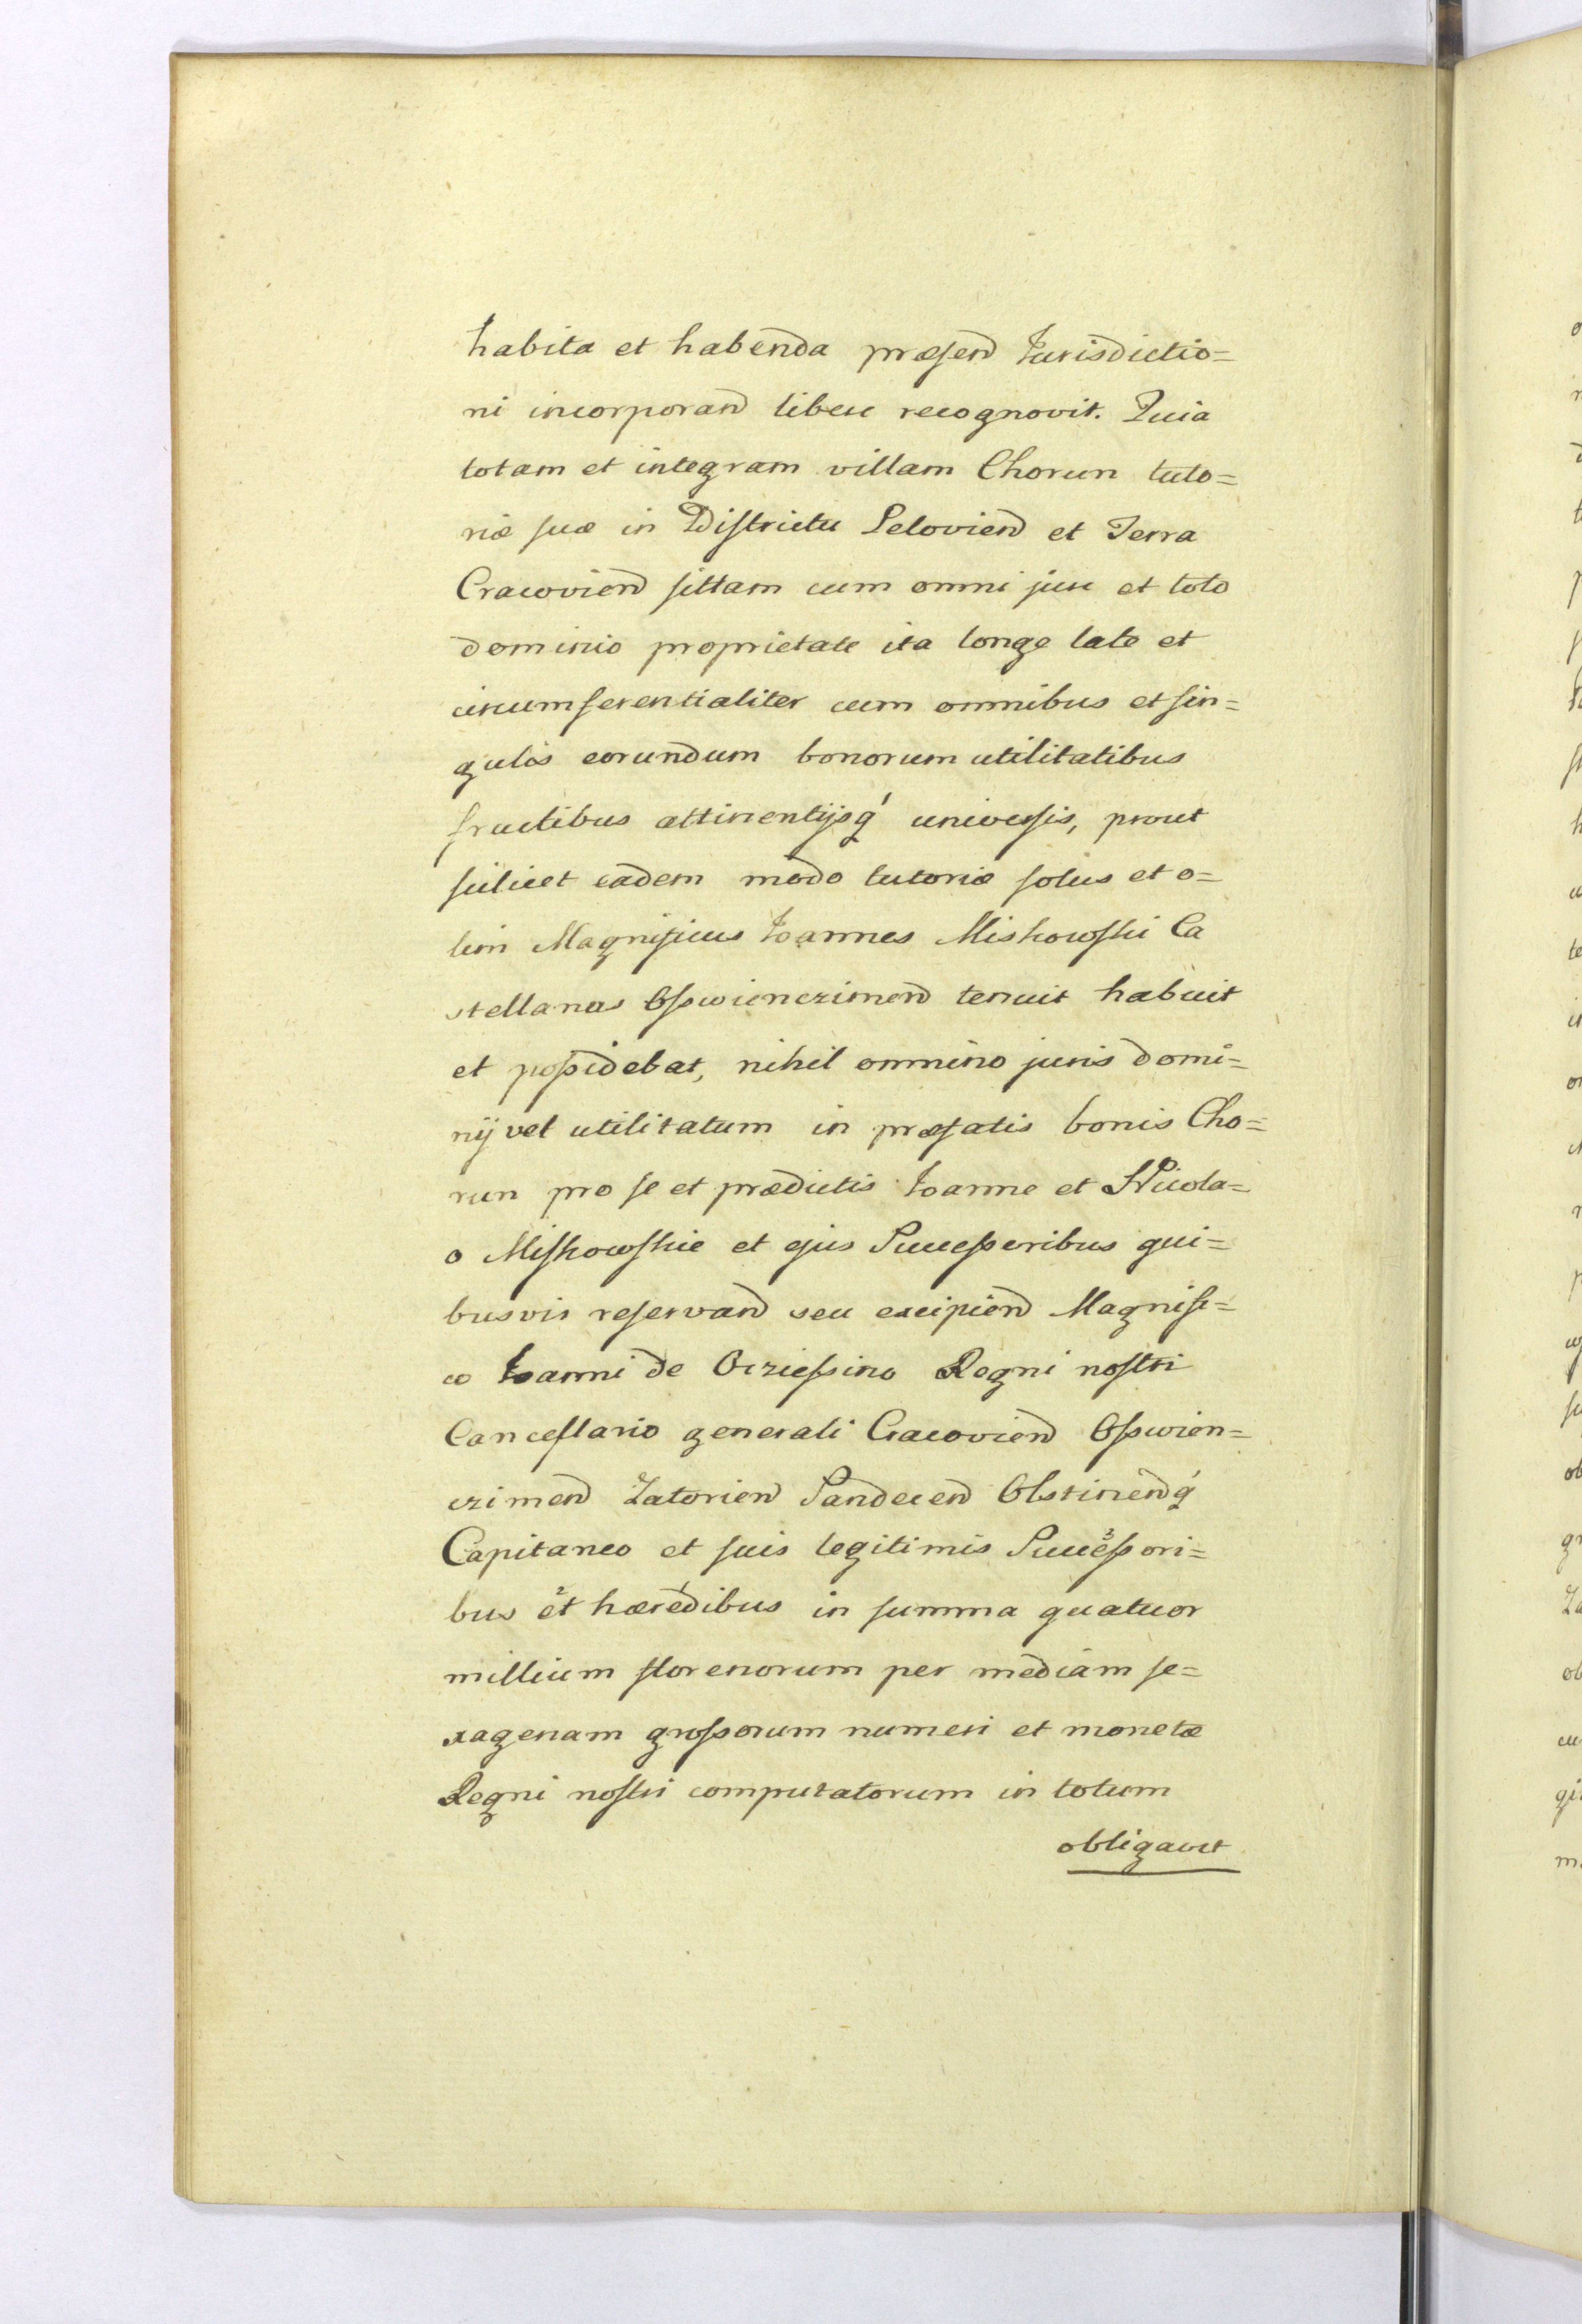 habita et habenda præsend Jurisdictio=
ni incorporand libere recognovit. Quia
totam et integram villam Chorun tuto=
riæ suæ in Districtu Leloviend et Terra
Cracoviend sittam cum omni jure et toto
dominio proprietate ita longe late et
circumferentialiter cum omnibus et sin=
gulis eorundum bonorum utilitatibus
fructibus attinentijsq́ universis, prout
scilicet eadem modo tutoriæ solus et o=
lim Magnificus Joannes Miskowski Ca
stellanus Osswienczimend tenuit habuit
et possidebat, nihil omnino juris domi=
nij vel utilitatum in præfatis bonis Cho=
run pro se et prædictis Joanne et Nicola=
o Miskowskie et ejus Successoribus qui=
busvis reservand seu excipiend Magnifi=
co Joanni de Ocziessino Regni nostri
Cancellario generali Cracoviend Osswien=
czimend Zatoriend Sandecend Olstinendq́
Capitaneo et suis legitimis Successori=
bus et hæredibus in summa quatuor
millium florenorum per mediam se=
xagenam grossorum numeri et monetæ
Regni nostri computatorum in totum
obligavit